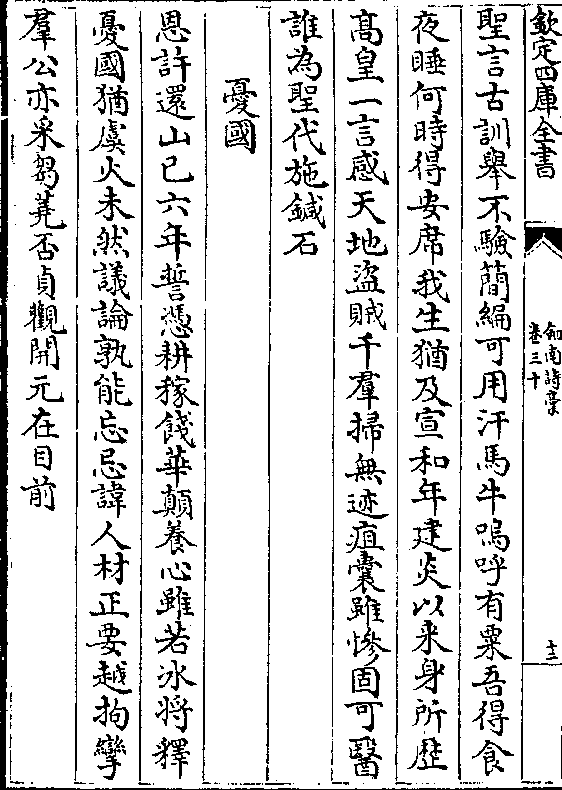 欽定四庫全書
劍南詩稾
卷三十
十二
聖言古訓舉不驗簡編可用汗馬牛嗚呼有粟吾得食
夜睡何時得安席我生猶及宣和年建炎以来身所歴
髙皇一言感天地盗賊千羣掃無迹疽囊雖慘固可醫
誰為聖代施鍼石
憂國
恩許還山已六年誓憑耕稼餞華顛養心雖若冰将釋
憂國猶虞火未然議論孰能忘忌諱人材正要越拘攣
羣公亦采芻蕘否貞觀開元在目前